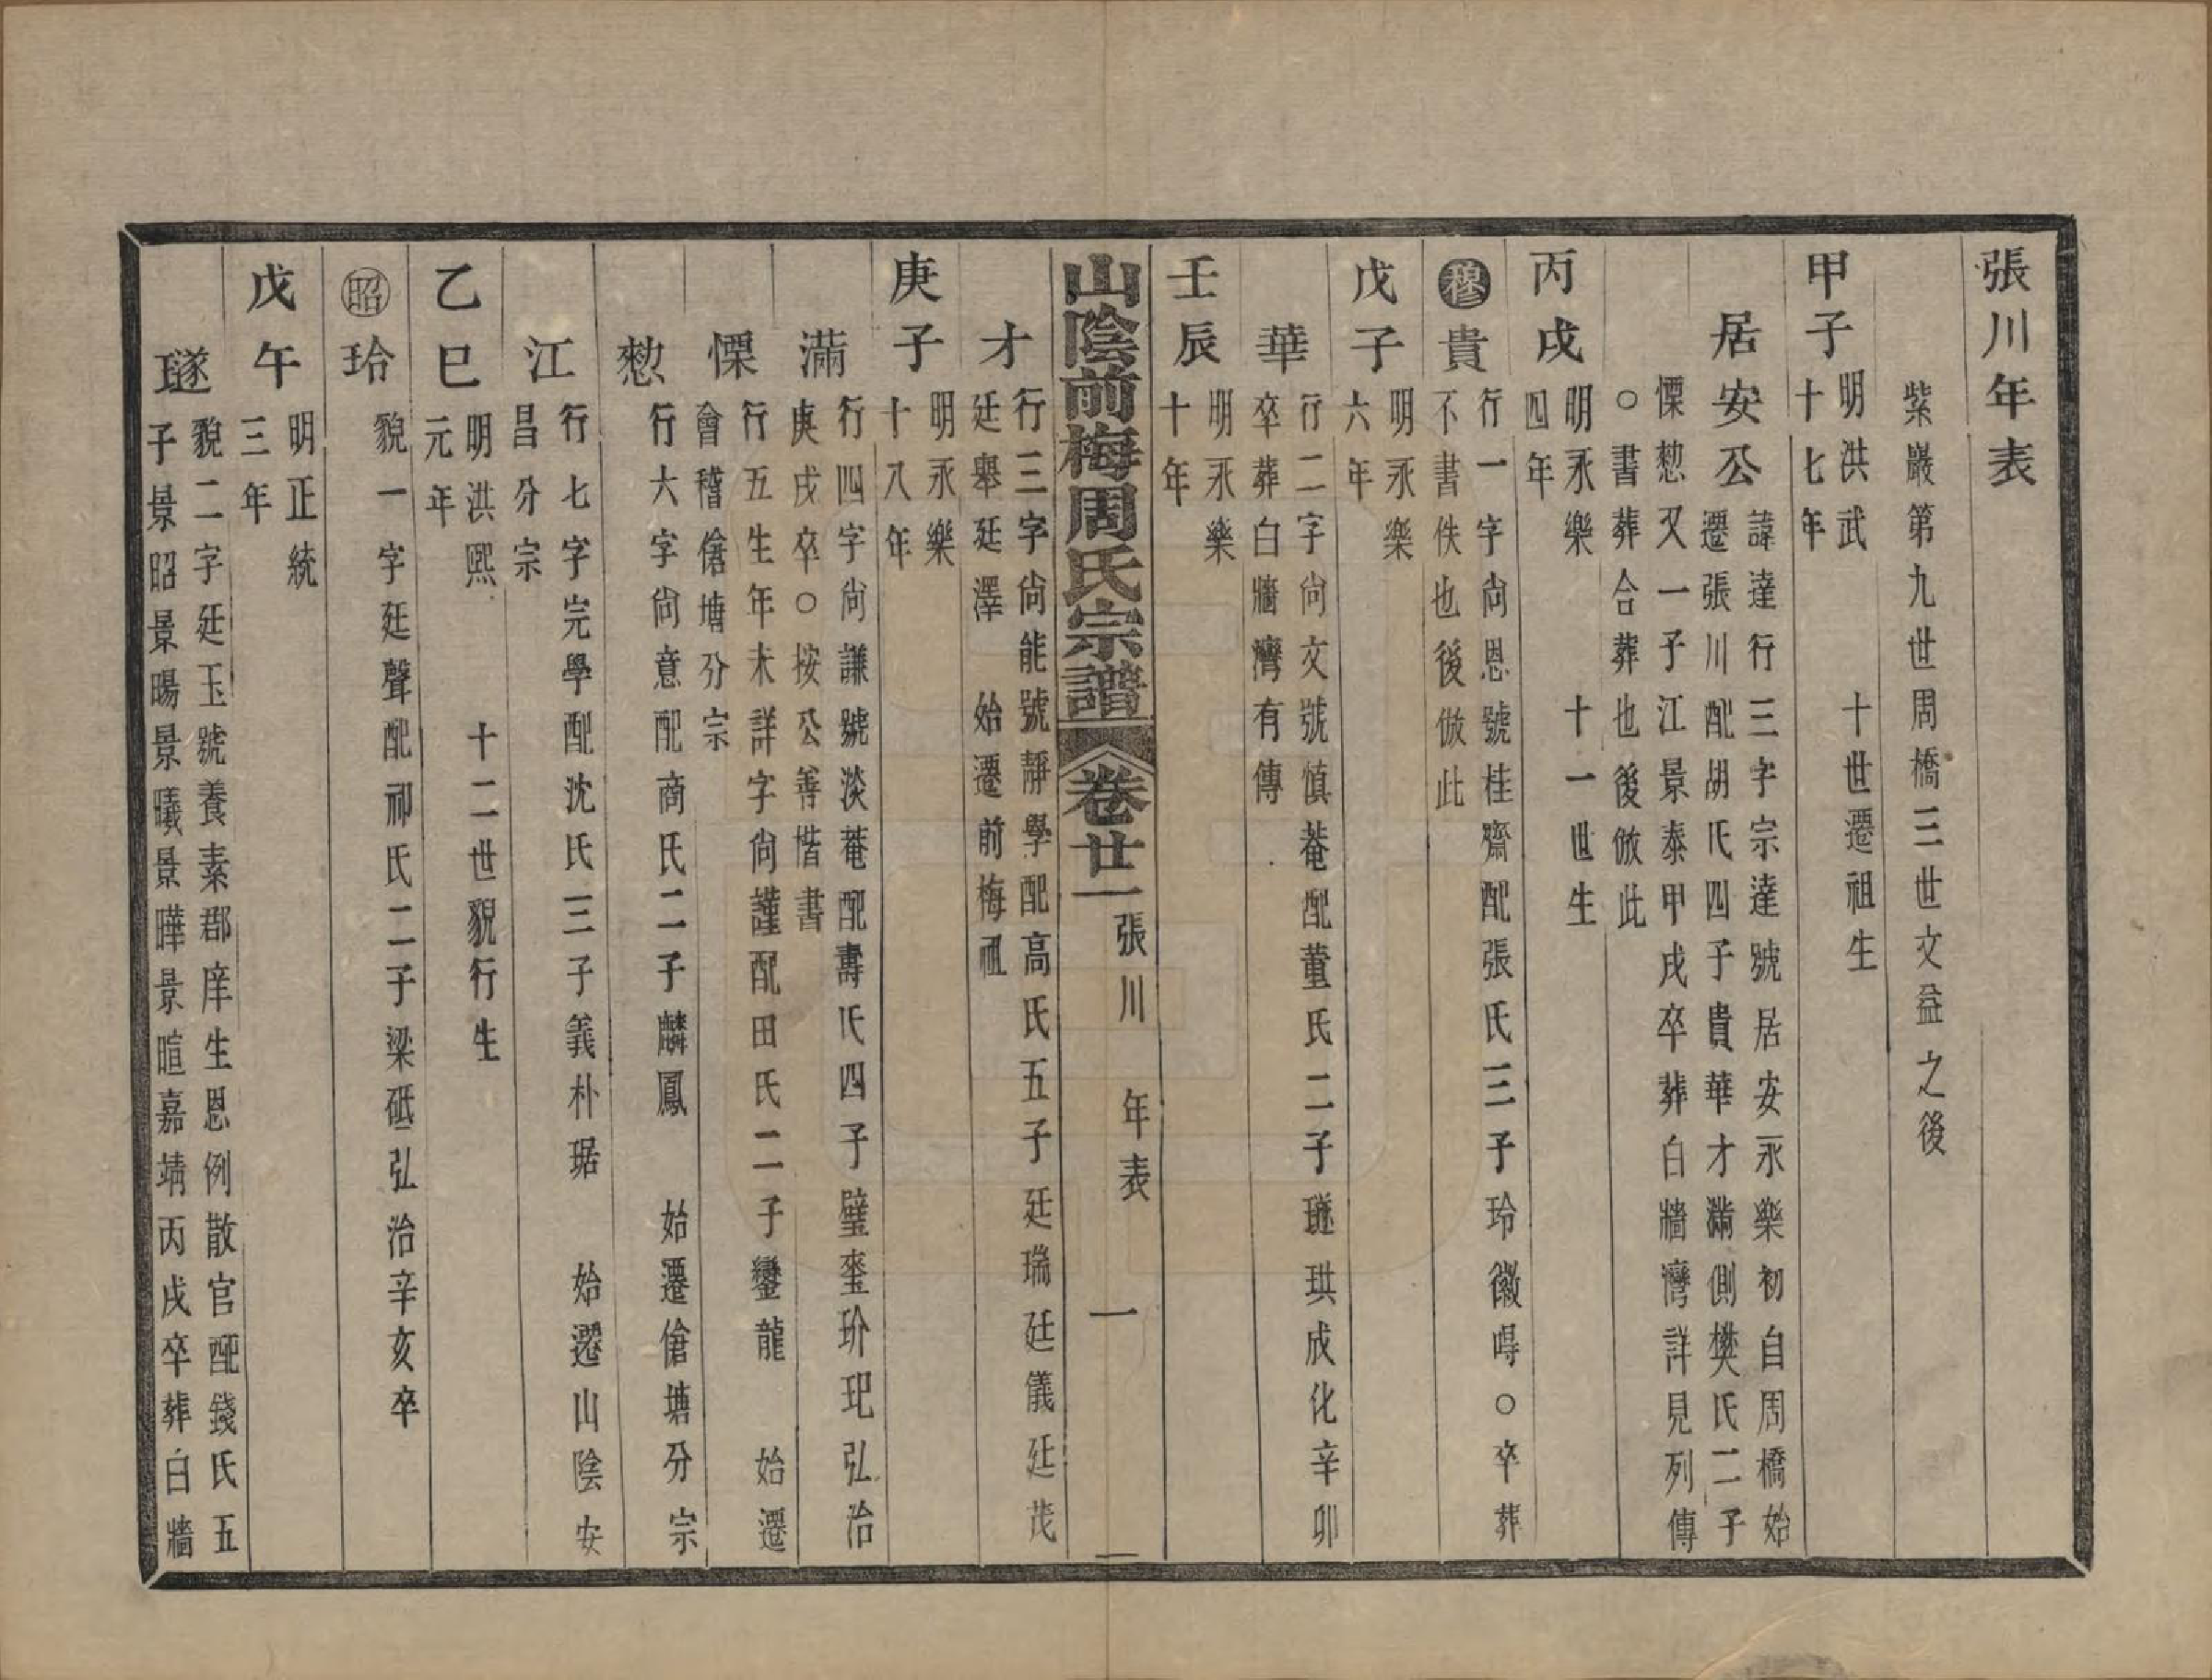 張川年表
紫巖第九世周橋三世文益之後
甲子明洪武
十七年
十世遷祖生
居安公諱達行三字宗達號居安永樂初自周橋始
遷張川配胡氏四子貴華才滿側樊氏二子
慄愸又一子江景泰甲戌卒葬白牆灣詳見列傳
○書葬合葬也後倣此
丙戌明永樂
四年
十一世生
穆貴行一字尙恩號桂齋配張氏三子玲徽㝵○卒葬
不書佚也後倣此
戊子明永樂
六年
華行二字尙文號慎菴配董氏二子璲珙成化辛卯
卒葬白牆灣有傳
壬辰明永樂
十年
山陰前梅周氏宗譜 卷廿一 張川 年表 一
才行三字尙能號靜學配高氏五子廷瑞廷儀廷茂
廷舉廷澤 始遷前梅祖
庚子明永樂
十八年
滿行四字尙謙號淡菴配壽氏四子璧瓽玠玘弘治
庚戌卒○按公善楷書
慄行五生年未詳字尙謹配田氏二子鑾龍 始遷
會稽傖塘分宗
愸行六字尙意配商氏二子麟鳳 始遷傖塘分宗
江行七字完學配沈氏三子義朴琚 始遷山陰安
昌分宗
乙巳明洪熙
元年
十二世貌行生
昭玲貌一字廷聲配祁氏二子梁砥弘治辛亥卒
戊午明正統
三年
璲貌二字廷玉號養素郡庠生恩例散官配錢氏五
子景昭景暘景曦景曄景暄嘉靖丙戌卒葬白牆